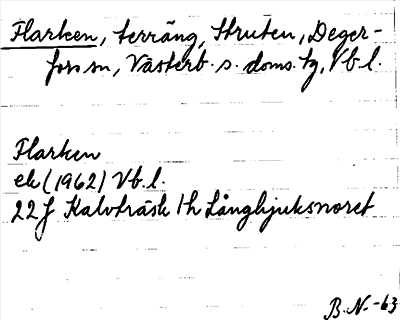 Flarken, terräng, Struten, Deger-
fors sn, Västerb. s. doms. tg, Vb l.
Flarken
ek (1962) Vb. l.
22 J Kalvträsk 1 h Långhjuksnoret
B. N. -63